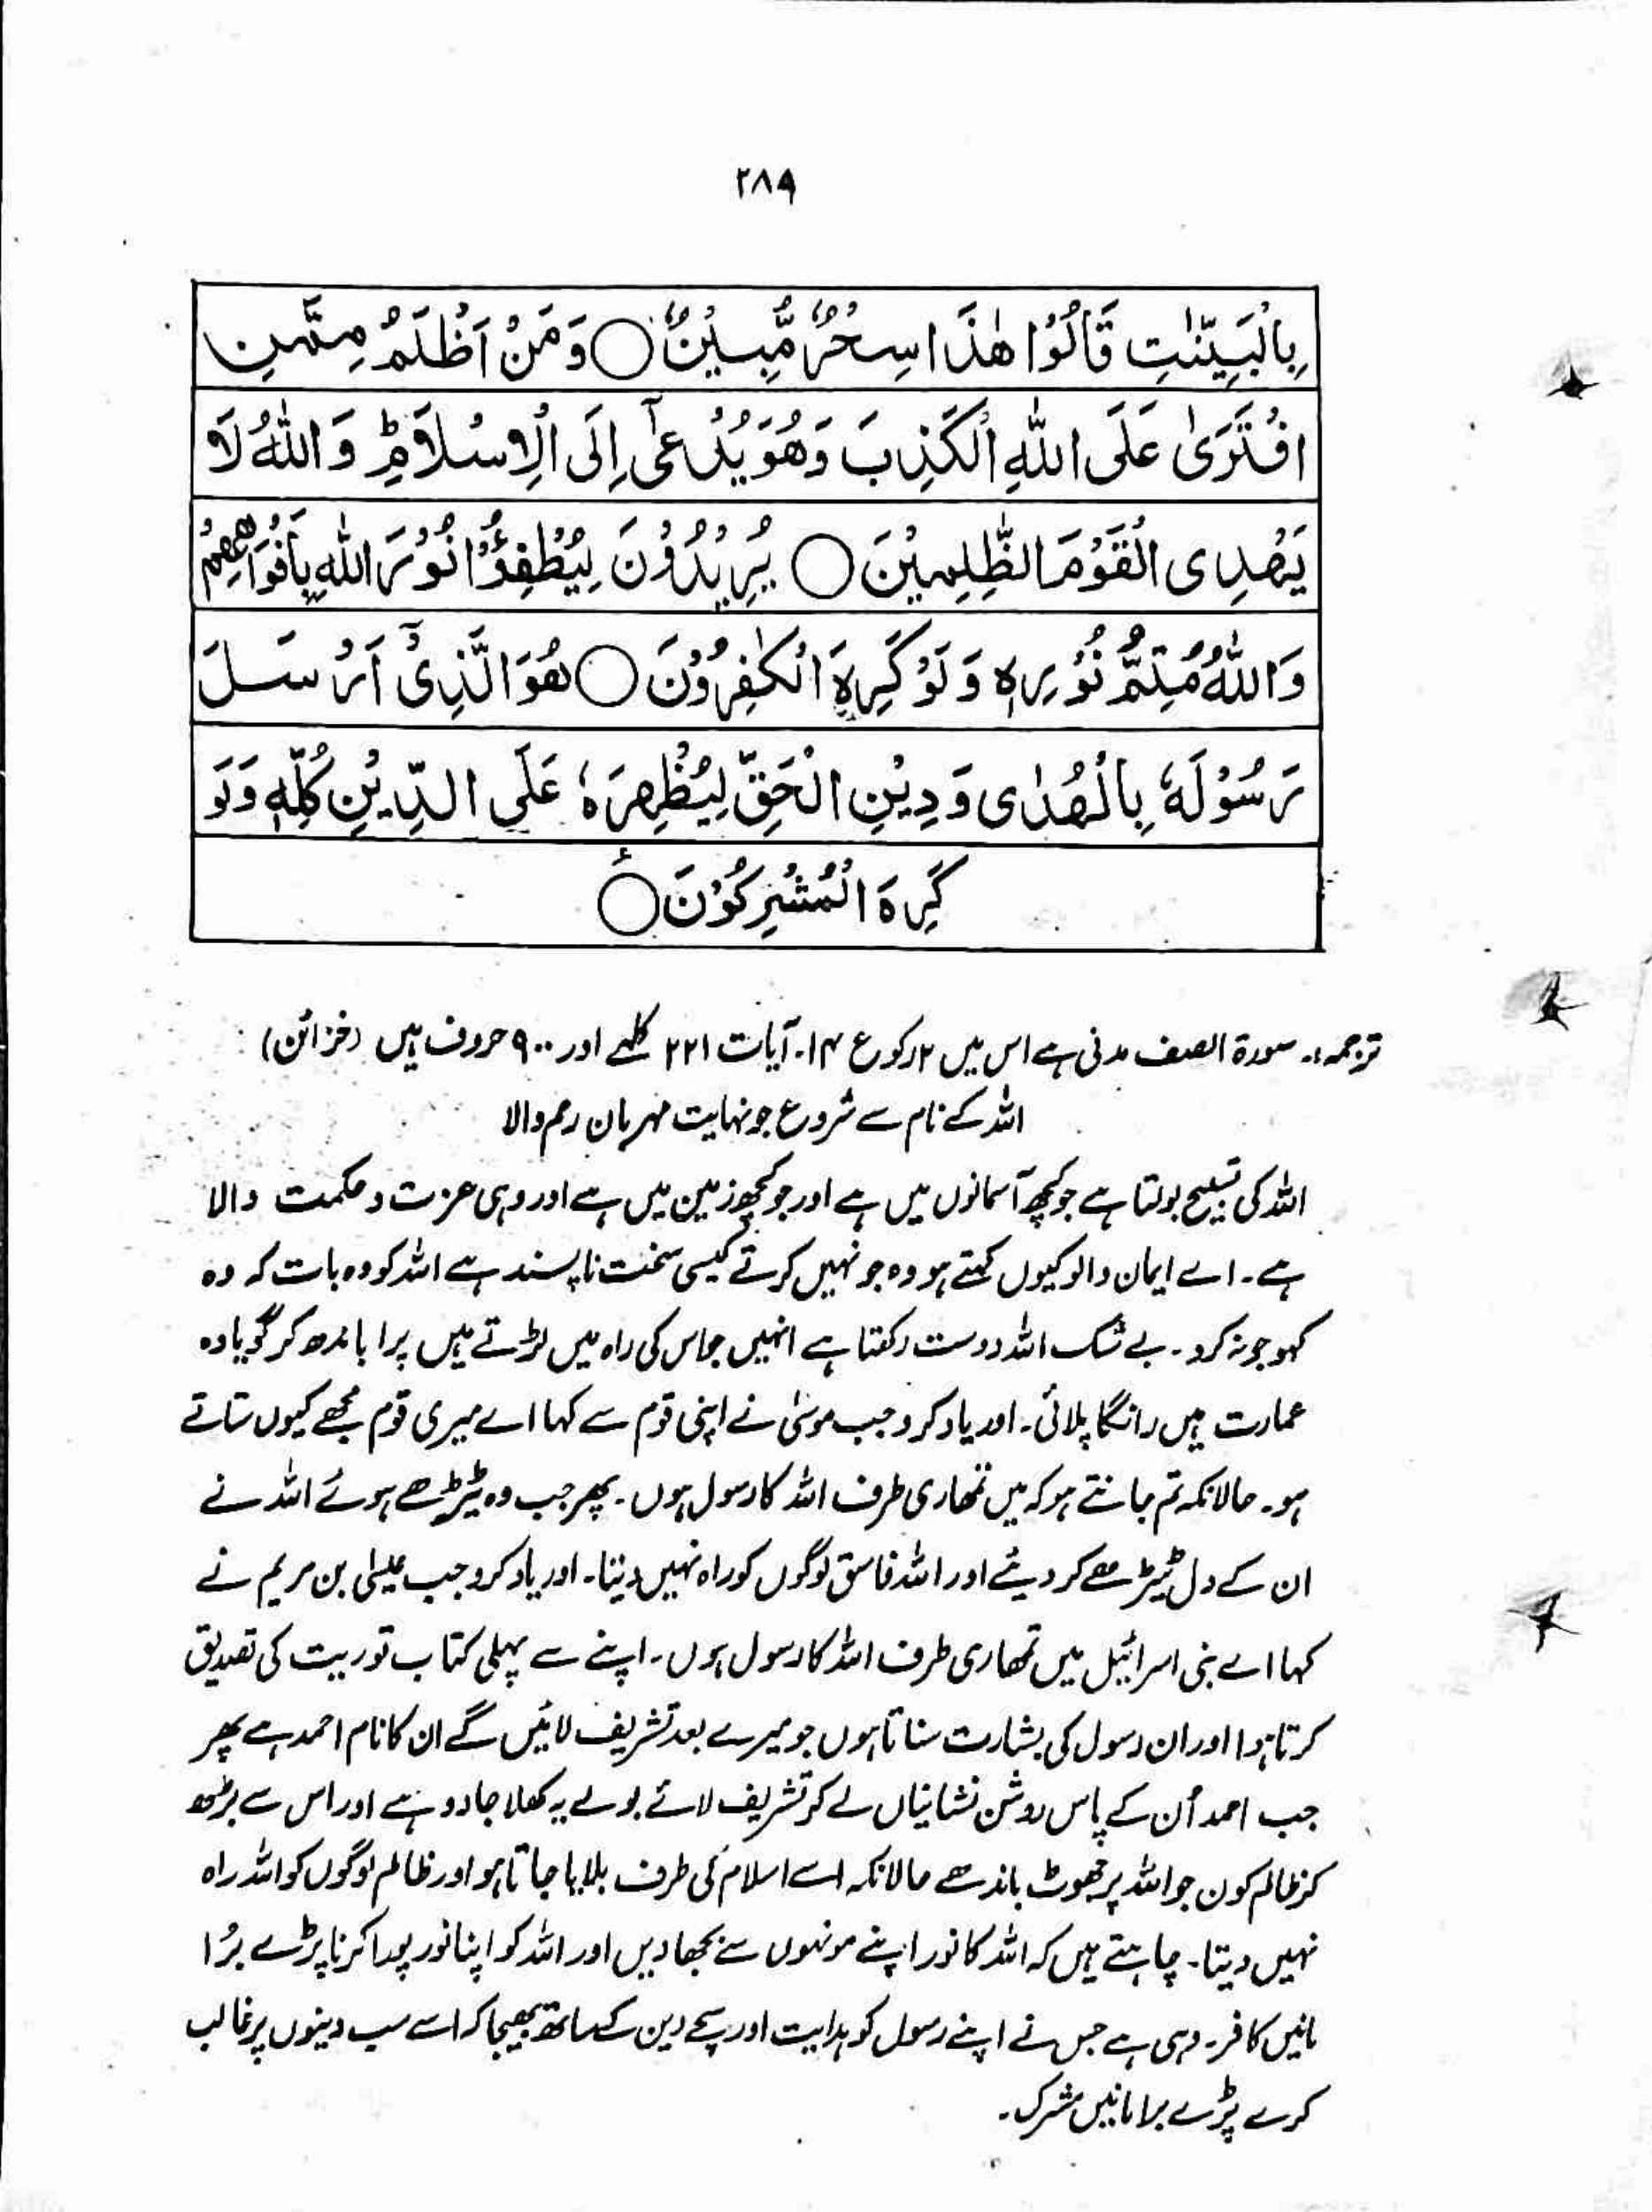 ۲۸۹
بِالْبَيِّنٰتِ قَالُوْا هٰذَا سِحْرٌ مُّبِيْنٌ ○ وَمَنْ اَظْلَمُ مِمَّنِ
افْتَرَىٰ عَلَى اللّٰهِ الْكَذِبَ وَهُوَ يُدْعٰٓى اِلَى الْاِسْلَامِ ؕ وَاللّٰهُ لَا
يَهْدِى الْقَوْمَ الظّٰلِمِيْنَ ○ يُرِيْدُوْنَ لِيُطْفِـُٔوْا نُوْرَ اللّٰهِ بِاَفْوَاهِهِمْ
وَاللّٰهُ مُتِمُّ نُوْرِهٖ وَلَوْ كَرِهَ الْكٰفِرُوْنَ ○ هُوَ الَّذِىْٓ اَرْسَلَ
رَسُوْلَهٗ بِالْهُدٰى وَدِيْنِ الْحَقِّ لِيُظْهِرَهٗ عَلَى الدِّيْنِ كُلِّهٖ وَلَوْ
كَرِهَ الْمُشْرِكُوْنَ ○
ترجمہ:۔ سورۃ الصف مدنی ہے اس میں ۲ رکوع ۱۴۔ آیات ۲۲۱ کلمے اور ۹۰۰ حروف ہیں (خزائن)
اللہ کے نام سے شروع جو نہایت مہربان رحم والا
اللہ کی تسبیح بولتا ہے جو کچھ آسمانوں میں ہے اور جو کچھ زمین میں ہے اور وہی عزت و حکمت والا
ہے۔ اے ایمان والو کیوں کہتے ہو وہ جو نہیں کرتے کیسی سخت ناپسند ہے اللہ کو وہ بات کہ وہ
کہو جو نہ کرو۔ بے شک اللہ دوست رکھتا ہے انہیں جو اس کی راہ میں لڑتے ہیں پرا باندھ کر گویا وہ
عمارت ہیں رانگا پلائی۔ اور یاد کرو جب موسیٰ نے اپنی قوم سے کہا اے میری قوم مجھے کیوں ستاتے
ہو۔ حالانکہ تم جانتے ہو کہ میں تمھاری طرف اللہ کا رسول ہوں۔ پھر جب وہ ٹیڑھے ہوئے اللہ نے
ان کے دل ٹیڑھے کر دیئے اور اللہ فاسق لوگوں کو راہ نہیں دیتا۔ اور یاد کرو جب عیسٰی بن مریم نے
کہا اے بنی اسرائیل میں تمھاری طرف اللہ کا رسول ہوں۔ اپنے سے پہلی کتاب توریت کی تصدیق
کرتا ہوا اور ان رسول کی بشارت سناتا ہوں جو میرے بعد تشریف لائیں گے ان کا نام احمد ہے پھر
جب احمد اُن کے پاس روشن نشانیاں لے کر تشریف لائے بولے یہ کھلا جادو ہے اور اس سے بڑھ
کر ظالم کون جو اللہ پر جھوٹ باندھے حالانکہ اسے اسلام کی طرف بلایا جاتا ہو اور ظالم لوگوں کو اللہ راہ
نہیں دیتا۔ چاہتے ہیں کہ اللہ کا نور اپنے مونہوں سے بجھا دیں اور اللہ کو اپنا نور پورا کرنا پڑے بُرا
مانیں کافر۔ وہی ہے جس نے اپنے رسول کو ہدایت اور سچے دین کے ساتھ بھیجا کہ اسے سب دینوں پر غالب
کرے پڑے برا مانیں مشرک۔